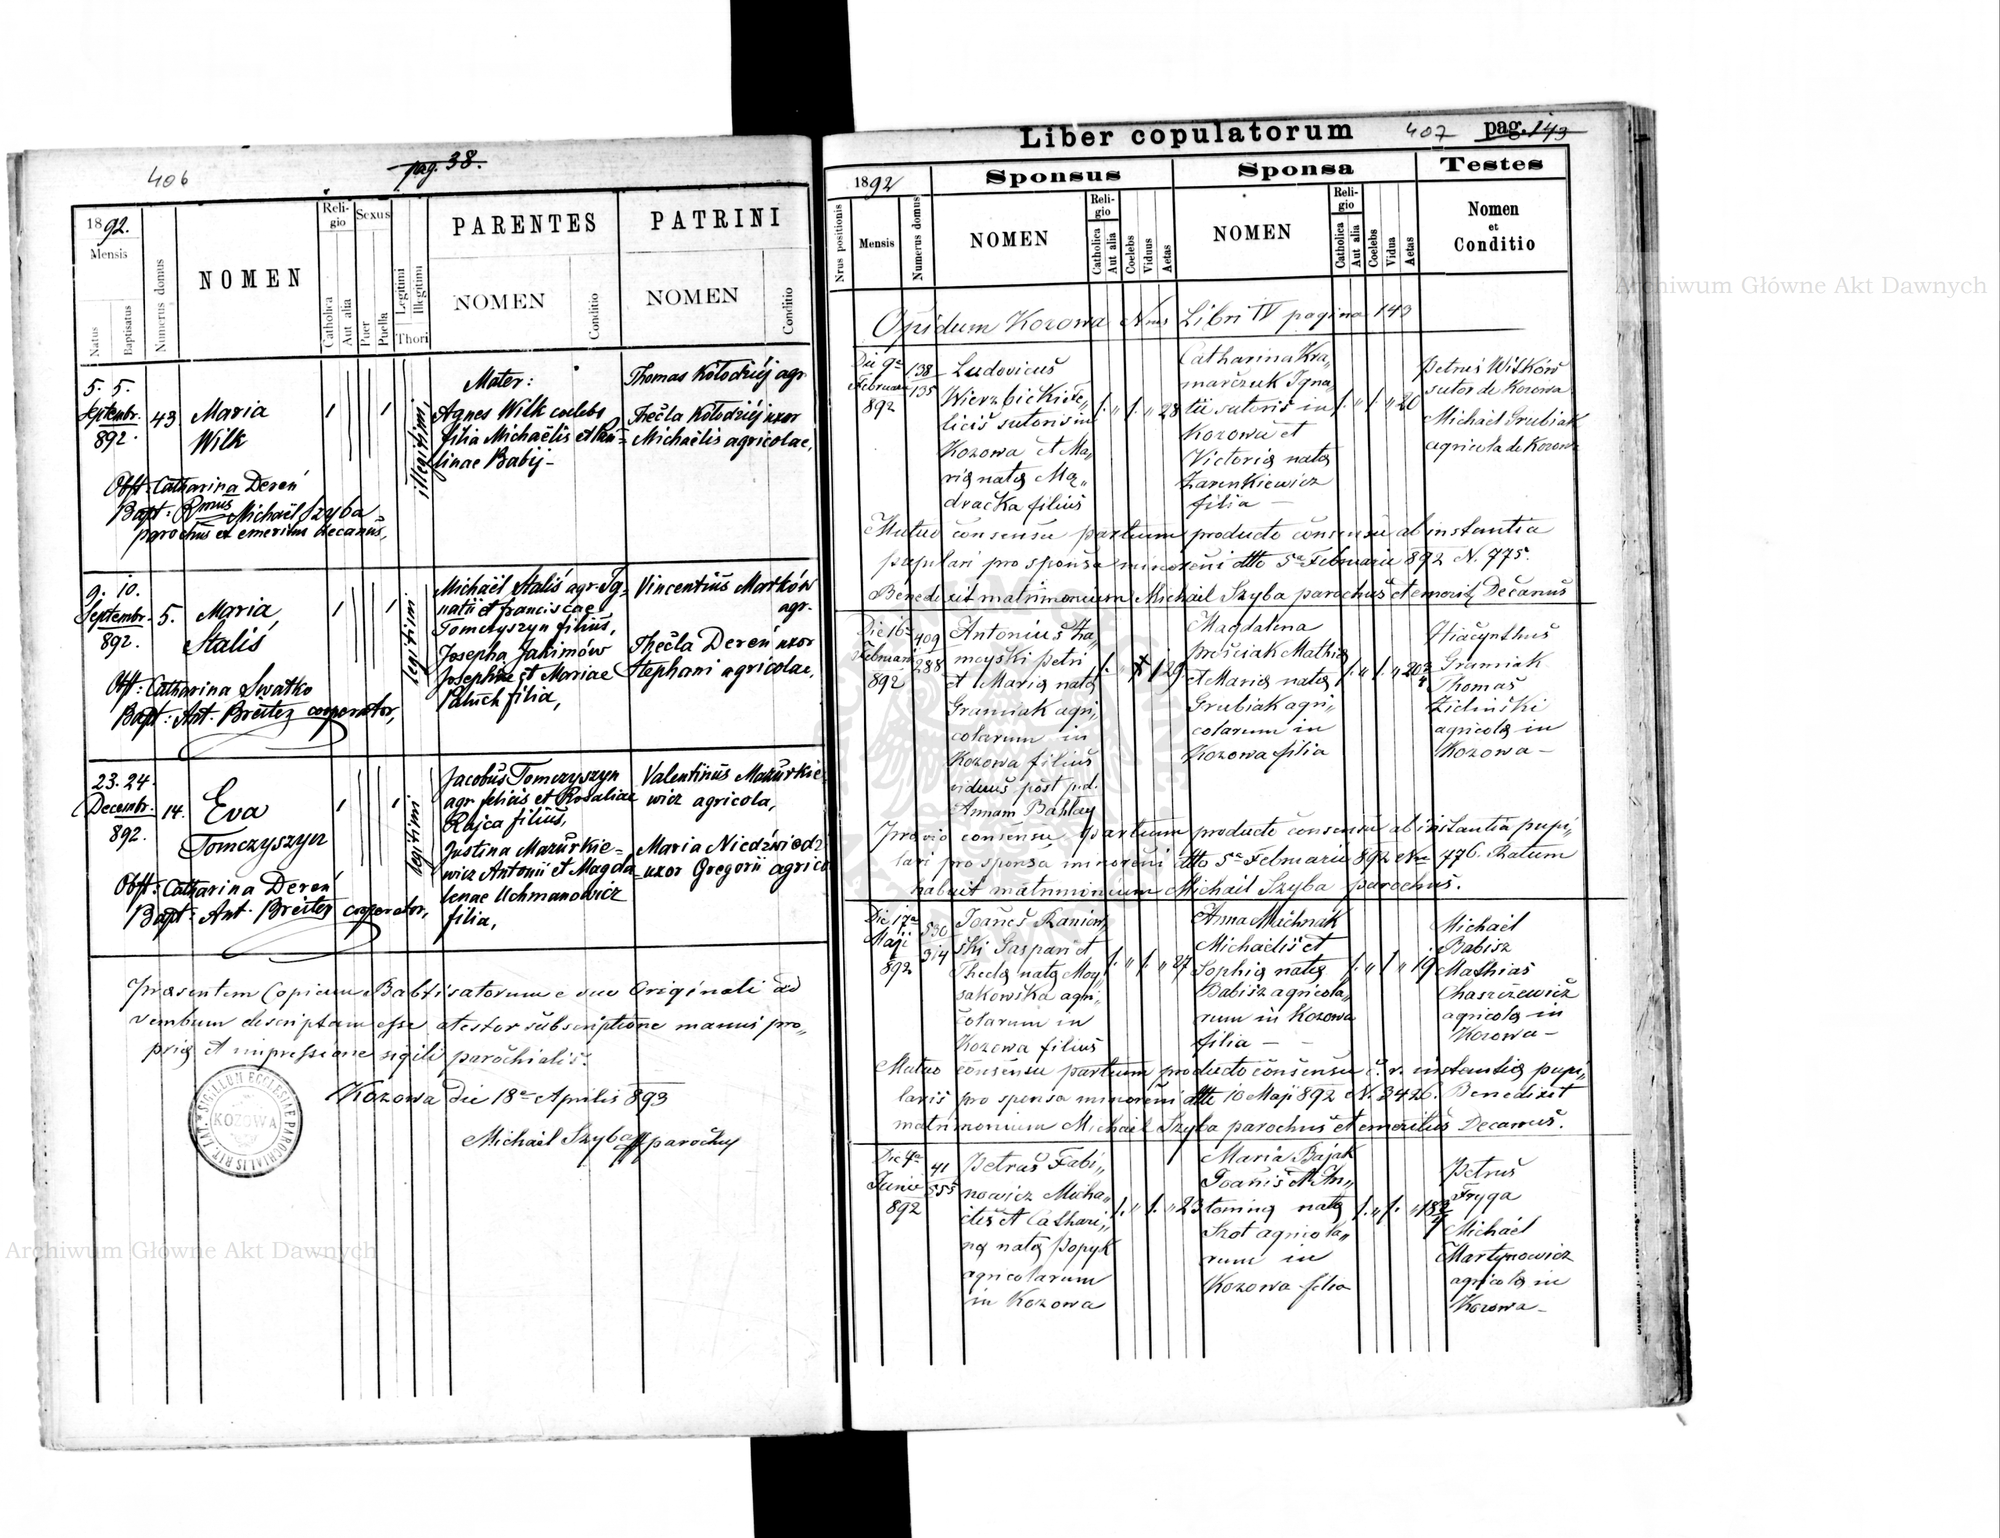 406
pag. 38.
1892.
Mensis
Natus
Baptisatus
Numerus domus
NOMEN
Religio
Catholica
Aut alia
Sexus
Puer
Puella
Legitimi
Illegitimi
Thori
PARENTES
NOMEN
Conditio
PATRINI
NOMEN
Conditio
5. 5.
Septembr.
892.
43
Maria
Wilk
illegitimi
Mater:
Agnes Wilk coelebs
filia Michaëlis et Pau=
linae Babij -
Thomas Kołodziéj agr.
Thecla Kołodziéj uxor
Michaëlis agricolae,
Obst: Catharina Dereń
Bapt: Rmus Michaël Szyba
parochus et emeritus decanus,
9. 10.
Septembr.
892.
5.
Maria
Staliś
legitimi
Michaël Staliś agr. Ig=
natii et franciscae
Tomczyszyn filius,
Josepha Jakimów
Josephae et Mariae
Paluch filia,
Vincentius Marków
agr.
Thecla Dereń uxor
Stephani agricolae,
Obst: Catharina Swatko
Bapt: Ant. Breiter cooperator,
23. 24.
Decembr.
892.
14.
Eva
Tomczyszyn
legitimi
Jacobus Tomczyszyn
agr. felicis et Rosaliae
Rajca filius,
Justina Mazurkie=
wicz Antonii et Magda=
lenae Uchmanowicz
filia,
Valentinus Mazurkie
wicz agricola,
Maria Niedźwiedź
uxor Gregorii agrico
Obst: Catharina Dereń
Bapt: Ant. Breiter cooperator,
Praesentem Copiam Babtisatorum e suo Originali ad
verbum descriptam esse atestor subscriptione manus pro„
pria et impressione sigili parochialis.
Kozowa die 18a Aprilis 893
Michaël Szyba parochus
SIGILLUM ECCLESIAE PAROCHIALIS RIT. LAT.
KOZOWA
Liber copulatorum
407
pag. 143
1892
Nrus positionis
Mensis
Numerus domus
Sponsus
NOMEN
Religio
Catholica
Aut alia
Coelebs
Viduus
Aetas
Sponsa
NOMEN
Religio
Catholica
Aut alia
Coelebs
Vidua
Aetas
Testes
Nomen
et
Conditio
Opidum Kozowa Nrus Libri IV pagina 143
Die 9a
Februarii
892
138
135
Ludovicus
Wierzbicki Fe„
licis sutoris in
Kozowa et Ma„
ria nata Mą„
dracka filius
28
Catharina Kra„
marczuk Igna„
tii sutoris in
Kozowa et
Victoria nata
Zarenkiewicz
filia —
20
Petrus Witków
sutor de Kozowa
Michaël Grubiak
agricola de Kozowa
Mutuo consensu partium producto consensu ab instantia
pupilari pro sponsa minoreni dtto 5a Februarii 892 N. 775.
Benedixit matrimonium Michaël Szyba parochus et emerit, Decanus
Die 16a
Februarii
892
409
288
Antonius Za„
mojski Petri
et Maria nata
Gramiak agri„
colarum in
Kozowa filius
viduus post p.d.
Annam Bahlay
29
Magdalena
Preściak Mathia
et Maria nata
Grubiak agri„
colarum in
Kozowa filia
20
Hiacynthus
Gramiak
Thomas
Zieliński
agricola in
Kozowa —
Praevio consensu partium producto consensu ab instantia pupi„
lari pro sponsa minoreni dtto 5a Februarii 892 Nr 776. Ratum
habuit matrimonium Michaël Szyba parochus.
Die 17a
Maji
892
530
314
Joanes Raniow„
ski Gaspari et
Thecla nata Moy„
sakowska agri„
colarum in
Kozowa filius
27
Anna Michnak
Michaelis et
Sophia nata
Babisz agricola„
rum in Kozowa
filia —
19
Michaël
Babisz
Mathias
Chaszczewicz
agricola in
Kozowa —
Mutuo consensu partium producto consensu c. r. instantia pupi„
laris pro sponsa minoreni dtto 10 Maji 892 N. 3426. Benedixit
matrimonium Michaël Szyba parochus et emeritus Decanus.
Die 9a
Junii
892
41
555
Petrus Fabi„
nowicz Micha„
elis et Cathari„
na nata Popyk
agricolarum
in Kozowa
23
Maria Bajak
Joanis et An„
tonina nata
Szot agricola„
rum in
Kozowa filia
18
Petrus
Fryga
Michaël
Martynowicz
agricola in
Kozowa —
Archiwum Główne Akt Dawnych
Archiwum Główne Akt Dawnych